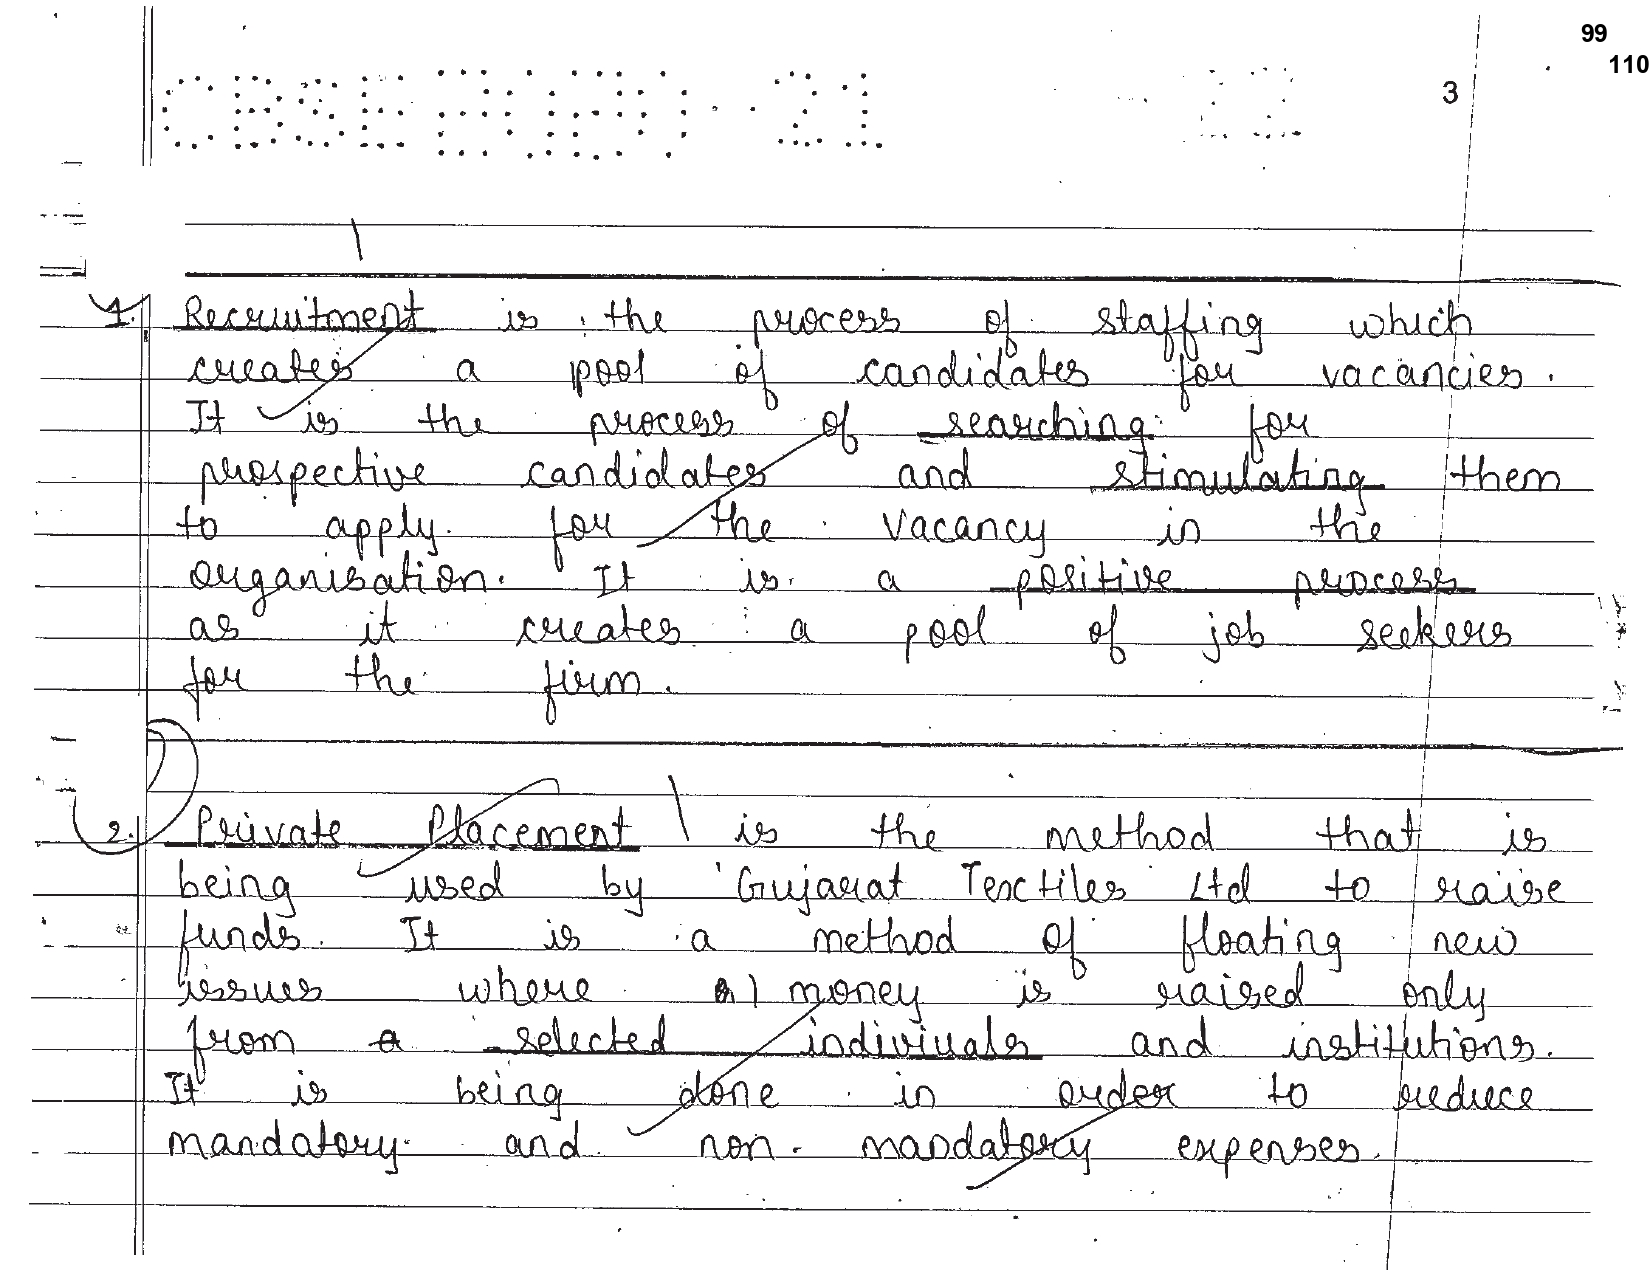 99
110
3
1. Recruitment is the process of staffing which
creates a pool of candidates for vacancies.
It is the process of searching for
prospective candidates and stimulating them
to apply for the vacancy in the
organisation. It is a positive process
as it creates a pool of job seekers
for the firm.
2. Private Placement is the method that is
being used by Gujarat Textiles Ltd to raise
funds. It is a method of floating new
issues where money is raised only
from selected indiviuals and institutions.
It is being done in order to reduce
mandatory and non-mandatory expenses.